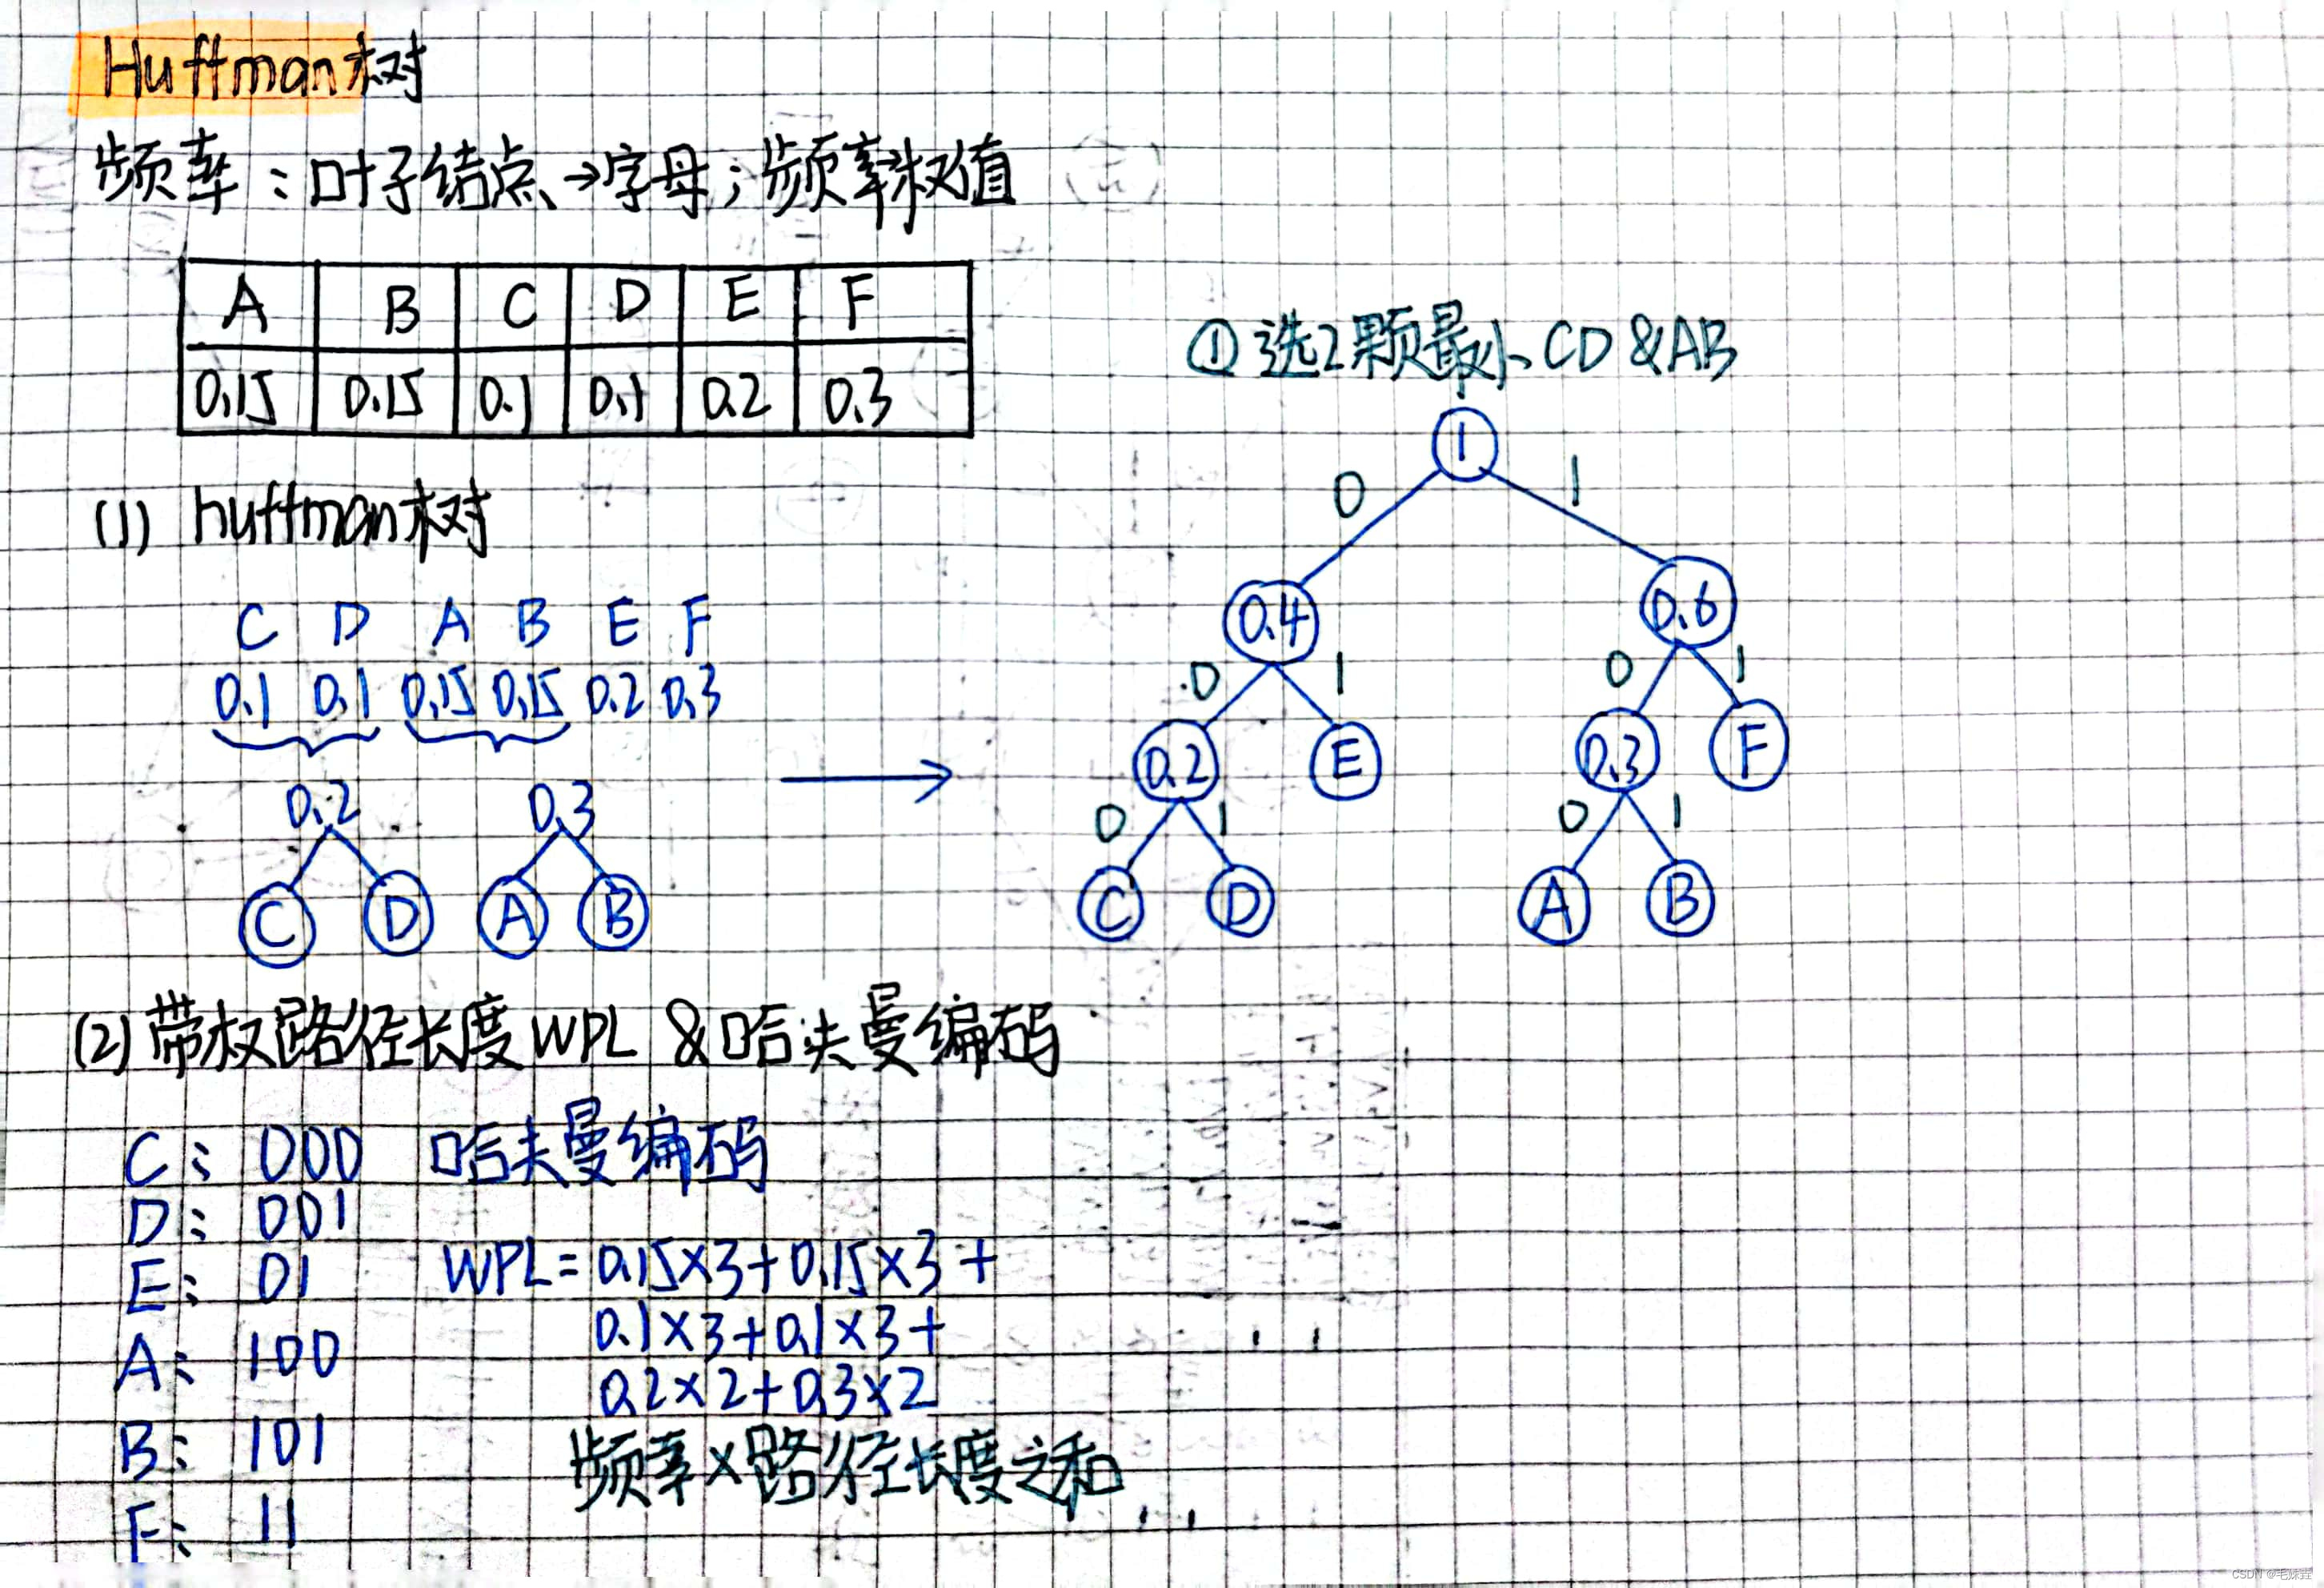 Huffman树
频率：叶子结点→字母；频率权值
A B C D E F
0.15 0.15 0.1 0.1 0.2 0.3
①选2颗最小CD&AB
(1) huffman树
C D A B E F
0.1 0.1 0.15 0.15 0.2 0.3
0.2 0.3
C D A B
1
0 1
0.4 0.6
0 1 0 1
0.2 E 0.3 F
0 1 0 1
C D A B
(2) 带权路径长度WPL & 哈夫曼编码
C: 000 哈夫曼编码
D: 001
E: 01 WPL=0.15×3+0.15×3+
0.1×3+0.1×3+
A: 100
0.2×2+0.3×2
B: 101
频率×路径长度之和
F: 11